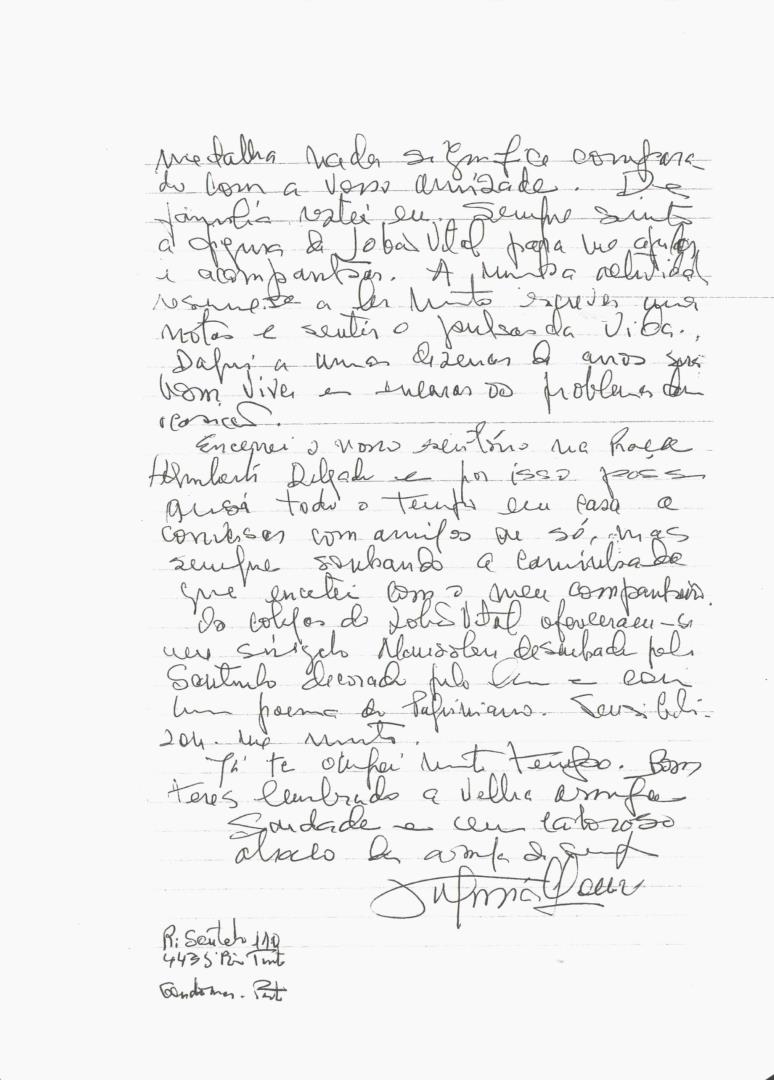 medalha nada significa compara-
do com a vossa amizade. Da
família restei eu. Sempre sinto
a figura de Lobão Vital para me ajudar
e acompanhar. A minha actividade
resume-se a ler muito escrever umas
notas e sentir o pulsar da vida.
Daqui a umas dezenas de anos será
bom viver e encarar os problemas
Encerrei o nosso escritório na Praça
Humberto Delgado e por isso passo
quasi todo o tempo em casa a
conversar com amigos ou só, mas
sempre sonhando a caminhada
que encetei com o meu companheiro.
Os colegas do Lobão Vital ofereceram-se
um singelo Mausoléu desenhado pelo
decorado pelo e com
um poema do Papiniano. Sensibili-
zou-me muito.
Já te ocupei muito tempo. Bom
teres lembrado a velha amiga
Saudade e um caloroso
abraço da amiga de sempre
R: Senteho 110
4435 Rio Tinto
Gondomar. Porto